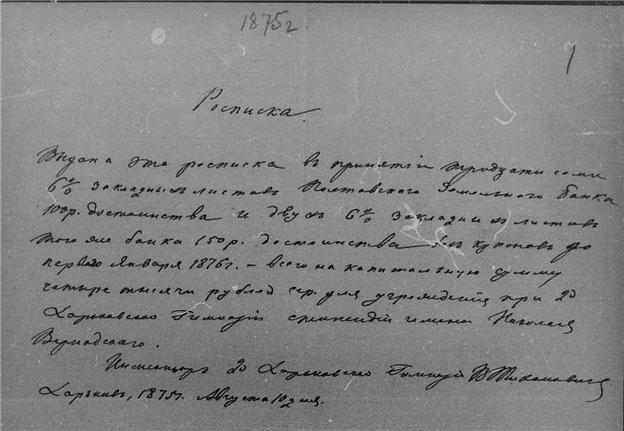 1875 г.
1
Росписка.
Выдана эта росписка в принятіи тридцати семи
6% закладных листов Полтавского Земельного банка
100 р. достоинства и двух 6% закладных листов
того же банка 150 р. достоинства без купонов до
первого Января 1876 г. – всего на капитальную сумму
четыре тысячи рублей сер. для учреждения при 2й
Харьковской Гимназіи стипендій имени Николая
Вернадского.
2й Харьковской Гимназіи
Харьков, 1875 г. Августа 10 дня.